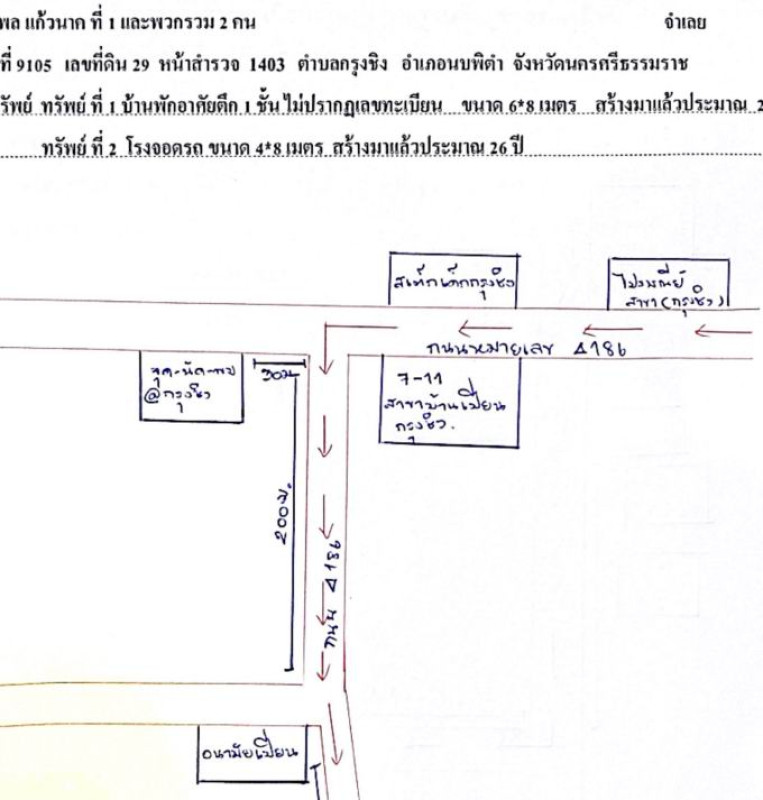 พล แก้วนาก ที่ 1 และพวกรวม 2 คน จำเลย
ที่ 9105 เลขที่ดิน 29 หน้าสำรวจ 1403 ตำบลกรุงชิง อำเภอนบพิตำ จังหวัดนครศรีธรรมราช
รัพย์ ทรัพย์ ที่ 1 บ้านพักอาศัยตึก 1 ชั้น ไม่ปรากฏเลขทะเบียน ขนาด 6*8 เมตร สร้างมาแล้วประมาณ 2
ทรัพย์ ที่ 2 โรงจอดรถ ขนาด 4*8 เมตร สร้างมาแล้วประมาณ 26 ปี
สเต็กเด็กกรุงชิง
ไปรษณีย์
สาขา(กรุงชิง)
ถนนหมายเลข 4186
จุด-นัด-พบ
@กรุงชิง
30ม
7-11
สาขาบ้านเปียน
กรุงชิง.
200ม.
ถนน 4186
อนามัยเปียน